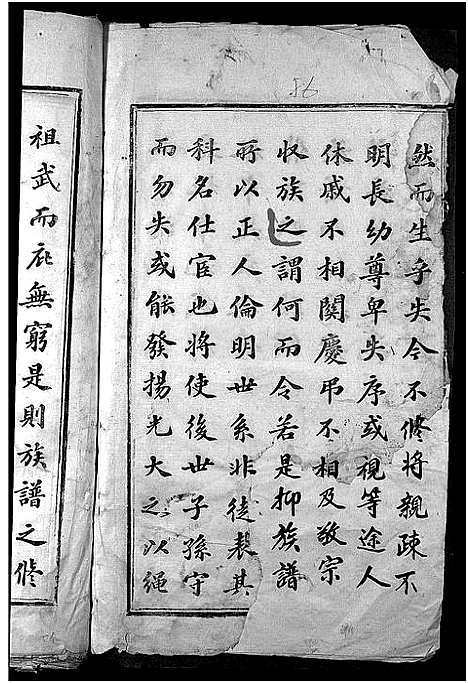 56
然而生乎失今不修將親疎不
明長幼尊卑失序或視等途人
休戚不相関慶弔不相及敬宗
收族之謂何而令若是抑族譜
所以正人倫明世系非徒表其
科名仕宦也將使後世子孫守
而勿失或能發揚光大之以繩
祖武而庇無窮是則族譜之修